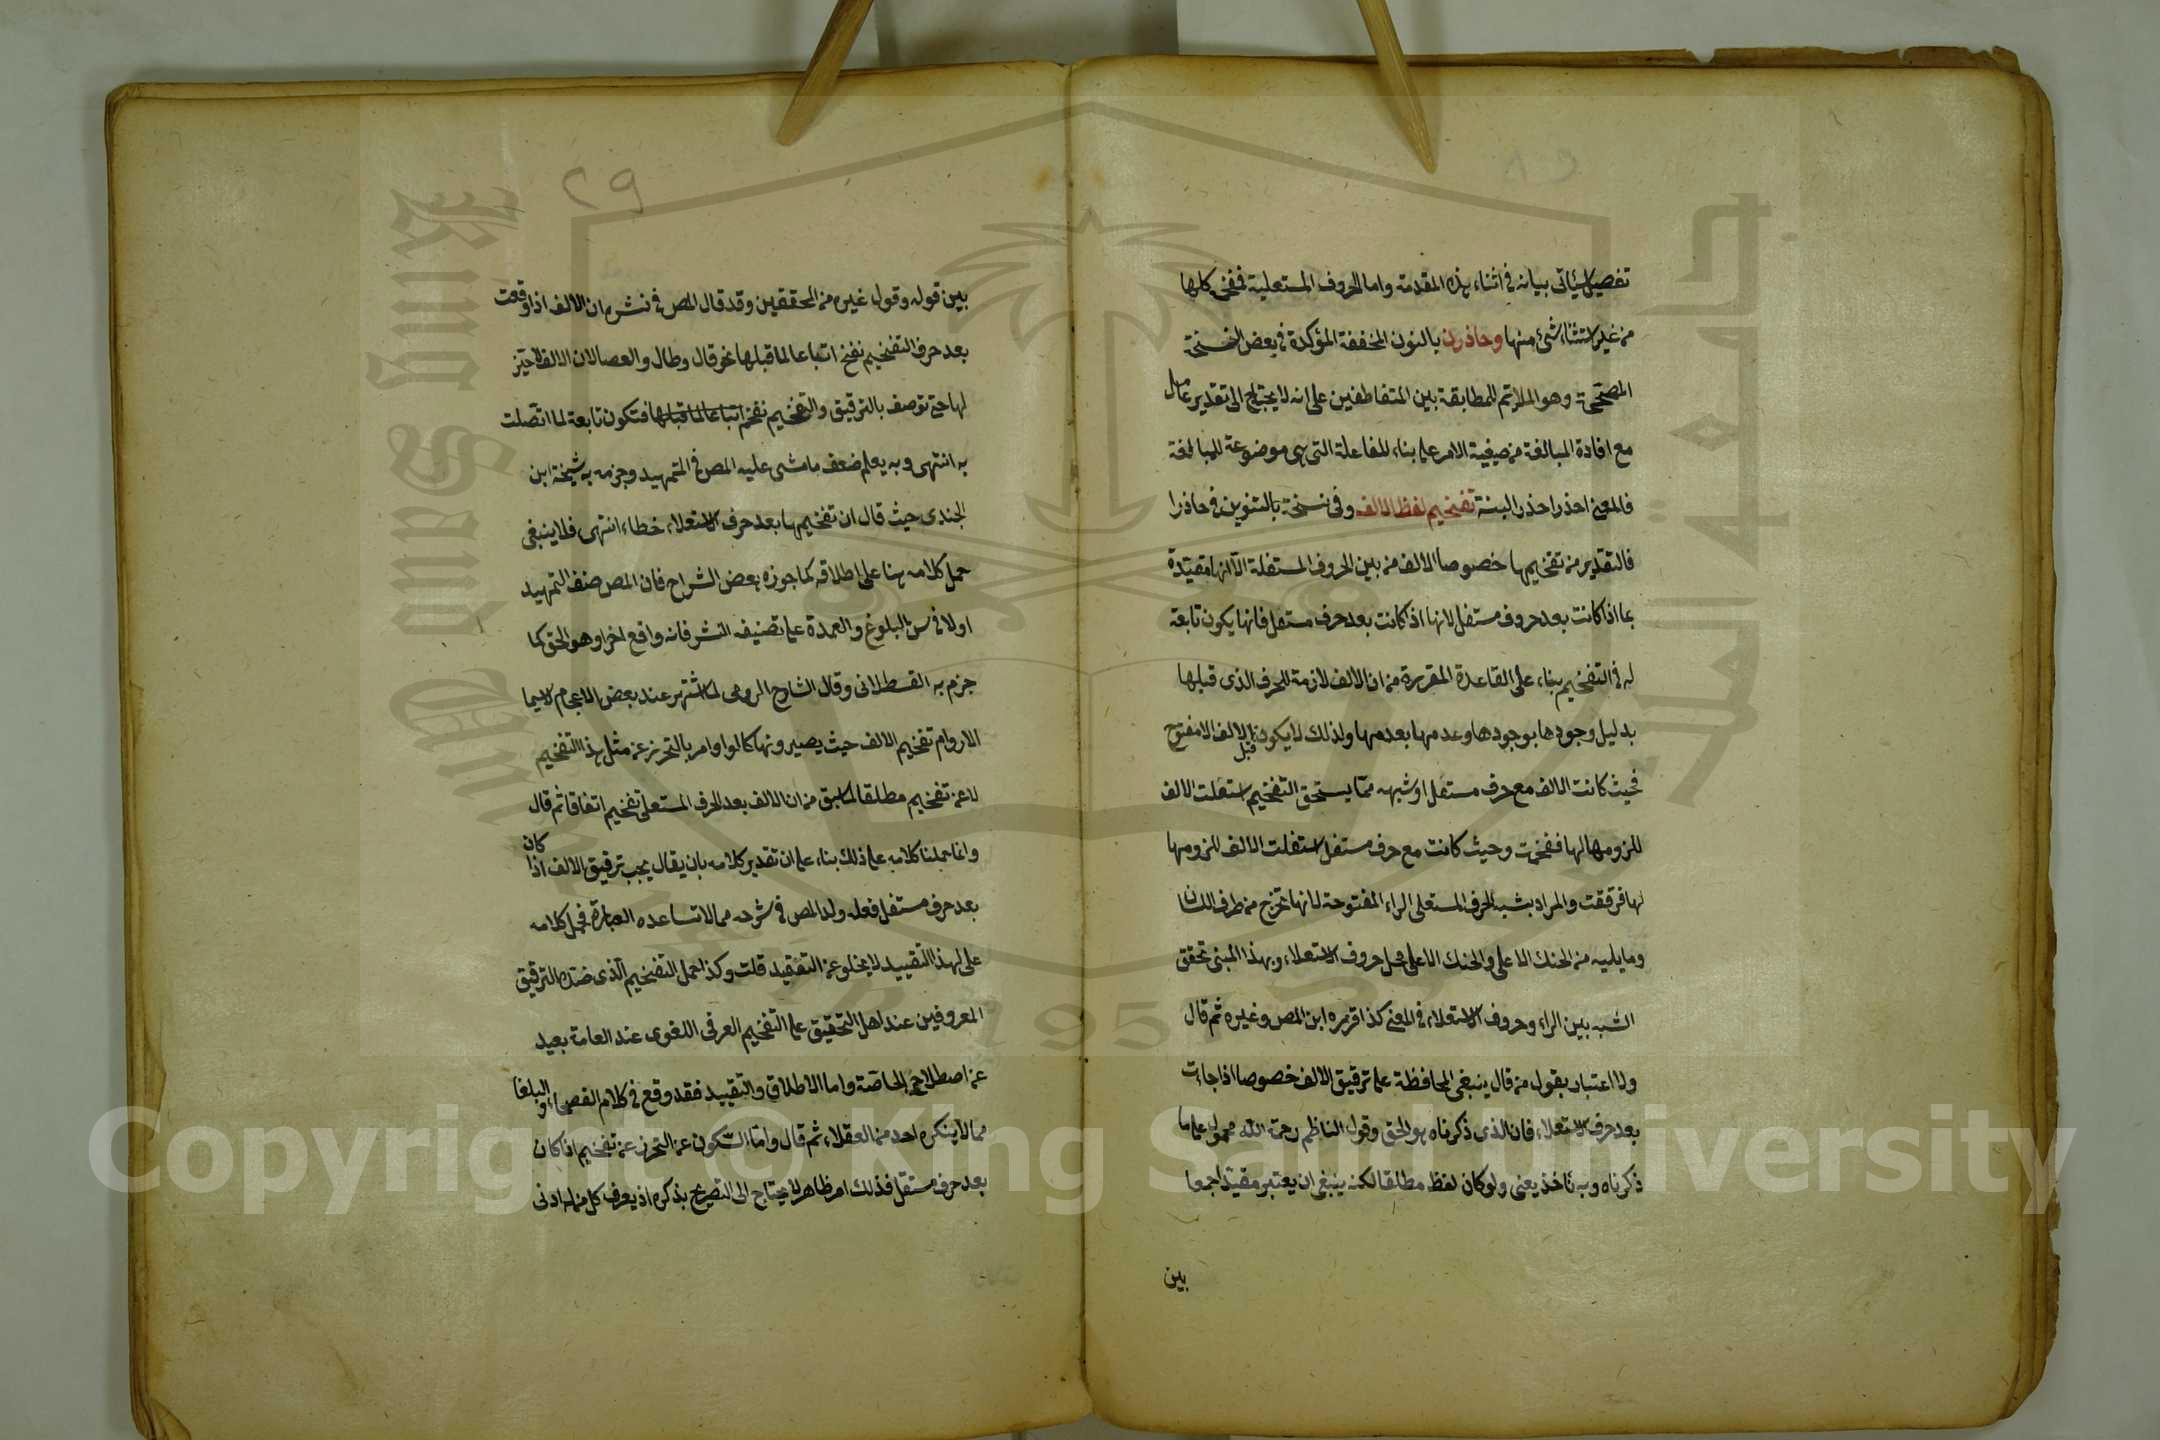 تفصيل سيأتى بيانه فى اثناء هذه المقدمة واما الحروف المستعلية فمفخم كلها
من غير استثناء شئ منها وحاذرن بالنون المخففة المؤكدة فى بعض النسخة
المصححة وهو الملايم للمطابقة بين المتعاطفين على انه لا يحتاج الى تقدير عامل
مع افادة المبالغة من صيغة الامر على بناء المفاعلة التى هى موضوعة للمبالغة
فالمعنى احذر احذر البتة تفخيم لفظ الالف وفى نسخة بالتنوين فى حاذرا
فالتقدير من تفخيمها خصوصا الالف من بين الحروف المستفلة الا انها مقيدة
بما اذا كانت بعد حروف مستفل لانها اذ كانت بعد حرف مستفل فانها يكون تابعة
له فى التفخيم بناء على القاعدة المقررة من ان الالف لازمة للحرف الذى قبلها
بدليل وجودها بوجودها وعدمها بعدمها ولذلك لا يكون قبل الالف الا مفتوح
فحيث كانت الالف مع حرف مستعل او شبهه مما يستحق التفخيم استعلت الالف
للزومها لها ففخمت وحيث كانت مع حرف مستفل استفلت الالف للزومها
لها فرققت والمراد بشبه الحرف المستعلى الراء المفتوحة لانها تخرج من طرف اللسان
وما يليه من الحنك الاعلى والحنك الاعلى محل حروف الاستعلاء وبهذا المبنى تحقق
الشبه بين الراء وحروف الاستعلاء فى المعنى كذا قرره ابن المص وغيره ثم قال
ولا اعتبار بقول من قال ينبغى المحافظة على ترقيق الالف خصوصا اذا جاءت
بعد حرف الاستعلاء فان الذى ذكرناه هو الحق وقول الناظم رحمة الله محمول على ما
ذكرناه وبه نأخذ يعنى ولو كان لفظ مطلقا لكنه ينبغى ان يعتبر مقيدا جمعا
بين
٢٩
بين قوله وقول غيره من المحققين وقد قال المص فى نشره ان الالف اذا وقعت
بعد حرف التفخيم تفخم اتباعا لما قبلها نحو قال وطال والعصا لان الالف لا حيز
لها حتى توصف بالترقيق والتفخيم تفخم اتباعا لما قبلها فتكون تابعة لما اتصلت
به انتهى وبه يعلم ضعف ما مشى عليه المص فى التمهيد وجزمه به شيخه ابن
الجندى حيث قال ان تفخيمها بعد حرف الاستعلاء خطاء انتهى فلا ينبغى
حمل كلامه هنا على اطلاقه كما جوزه بعض الشراح فان المص صنف التمهيد
اولا فى سن البلوغ والعمدة على تصنيفه النشر فانه واقع اخرا وهو الحق كما
جزم به القسطلانى وقال الشارح الرومى لما اشتهر عند بعض الاعجام لاسيما
الاروام تفخيم الالف حيث يصيرونها كالواو امر بالتحرز عن مثل هذا التفخيم
لا عن تفخيم مطلقا لما سبق من ان الالف بعد الحرف المستعلى تفخيم اتفاقا ثم قال
وانما حملنا كلامه على ذلك بناء على ان تقدير كلامه بان يقال يجب ترقيق الالف اذا كان
بعد حرف مستفل فعله ولد المص فى شرحه مما لا تساعده العبارة فحمل كلامه
على لهذا التقييد لا يخلو عن التعقيد قلت وكذا حمل التفخيم الذى ضده الترقيق
المعروفين عند اهل التحقيق على التفخيم العرفى اللغوى عند العامة بعيد
عن اصطلاح الخاصة واما الاطلاق والتقييد فقد وقع فى كلام الفصحاء والبلغا
مما لا ينكره احد من العقلاء ثم قال واما السكون عن التحرز عن تفخيم اذا كان
بعد حرف مستفل فذلك امر ظاهر لا يحتاج الى التصريح بذكره اذ يعرف كل من له ادنى
Copyright © King Saud University